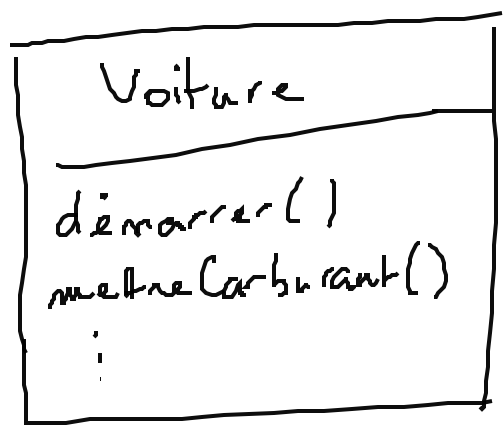 Voiture
démarrer()
mettreCarburant()
⋮